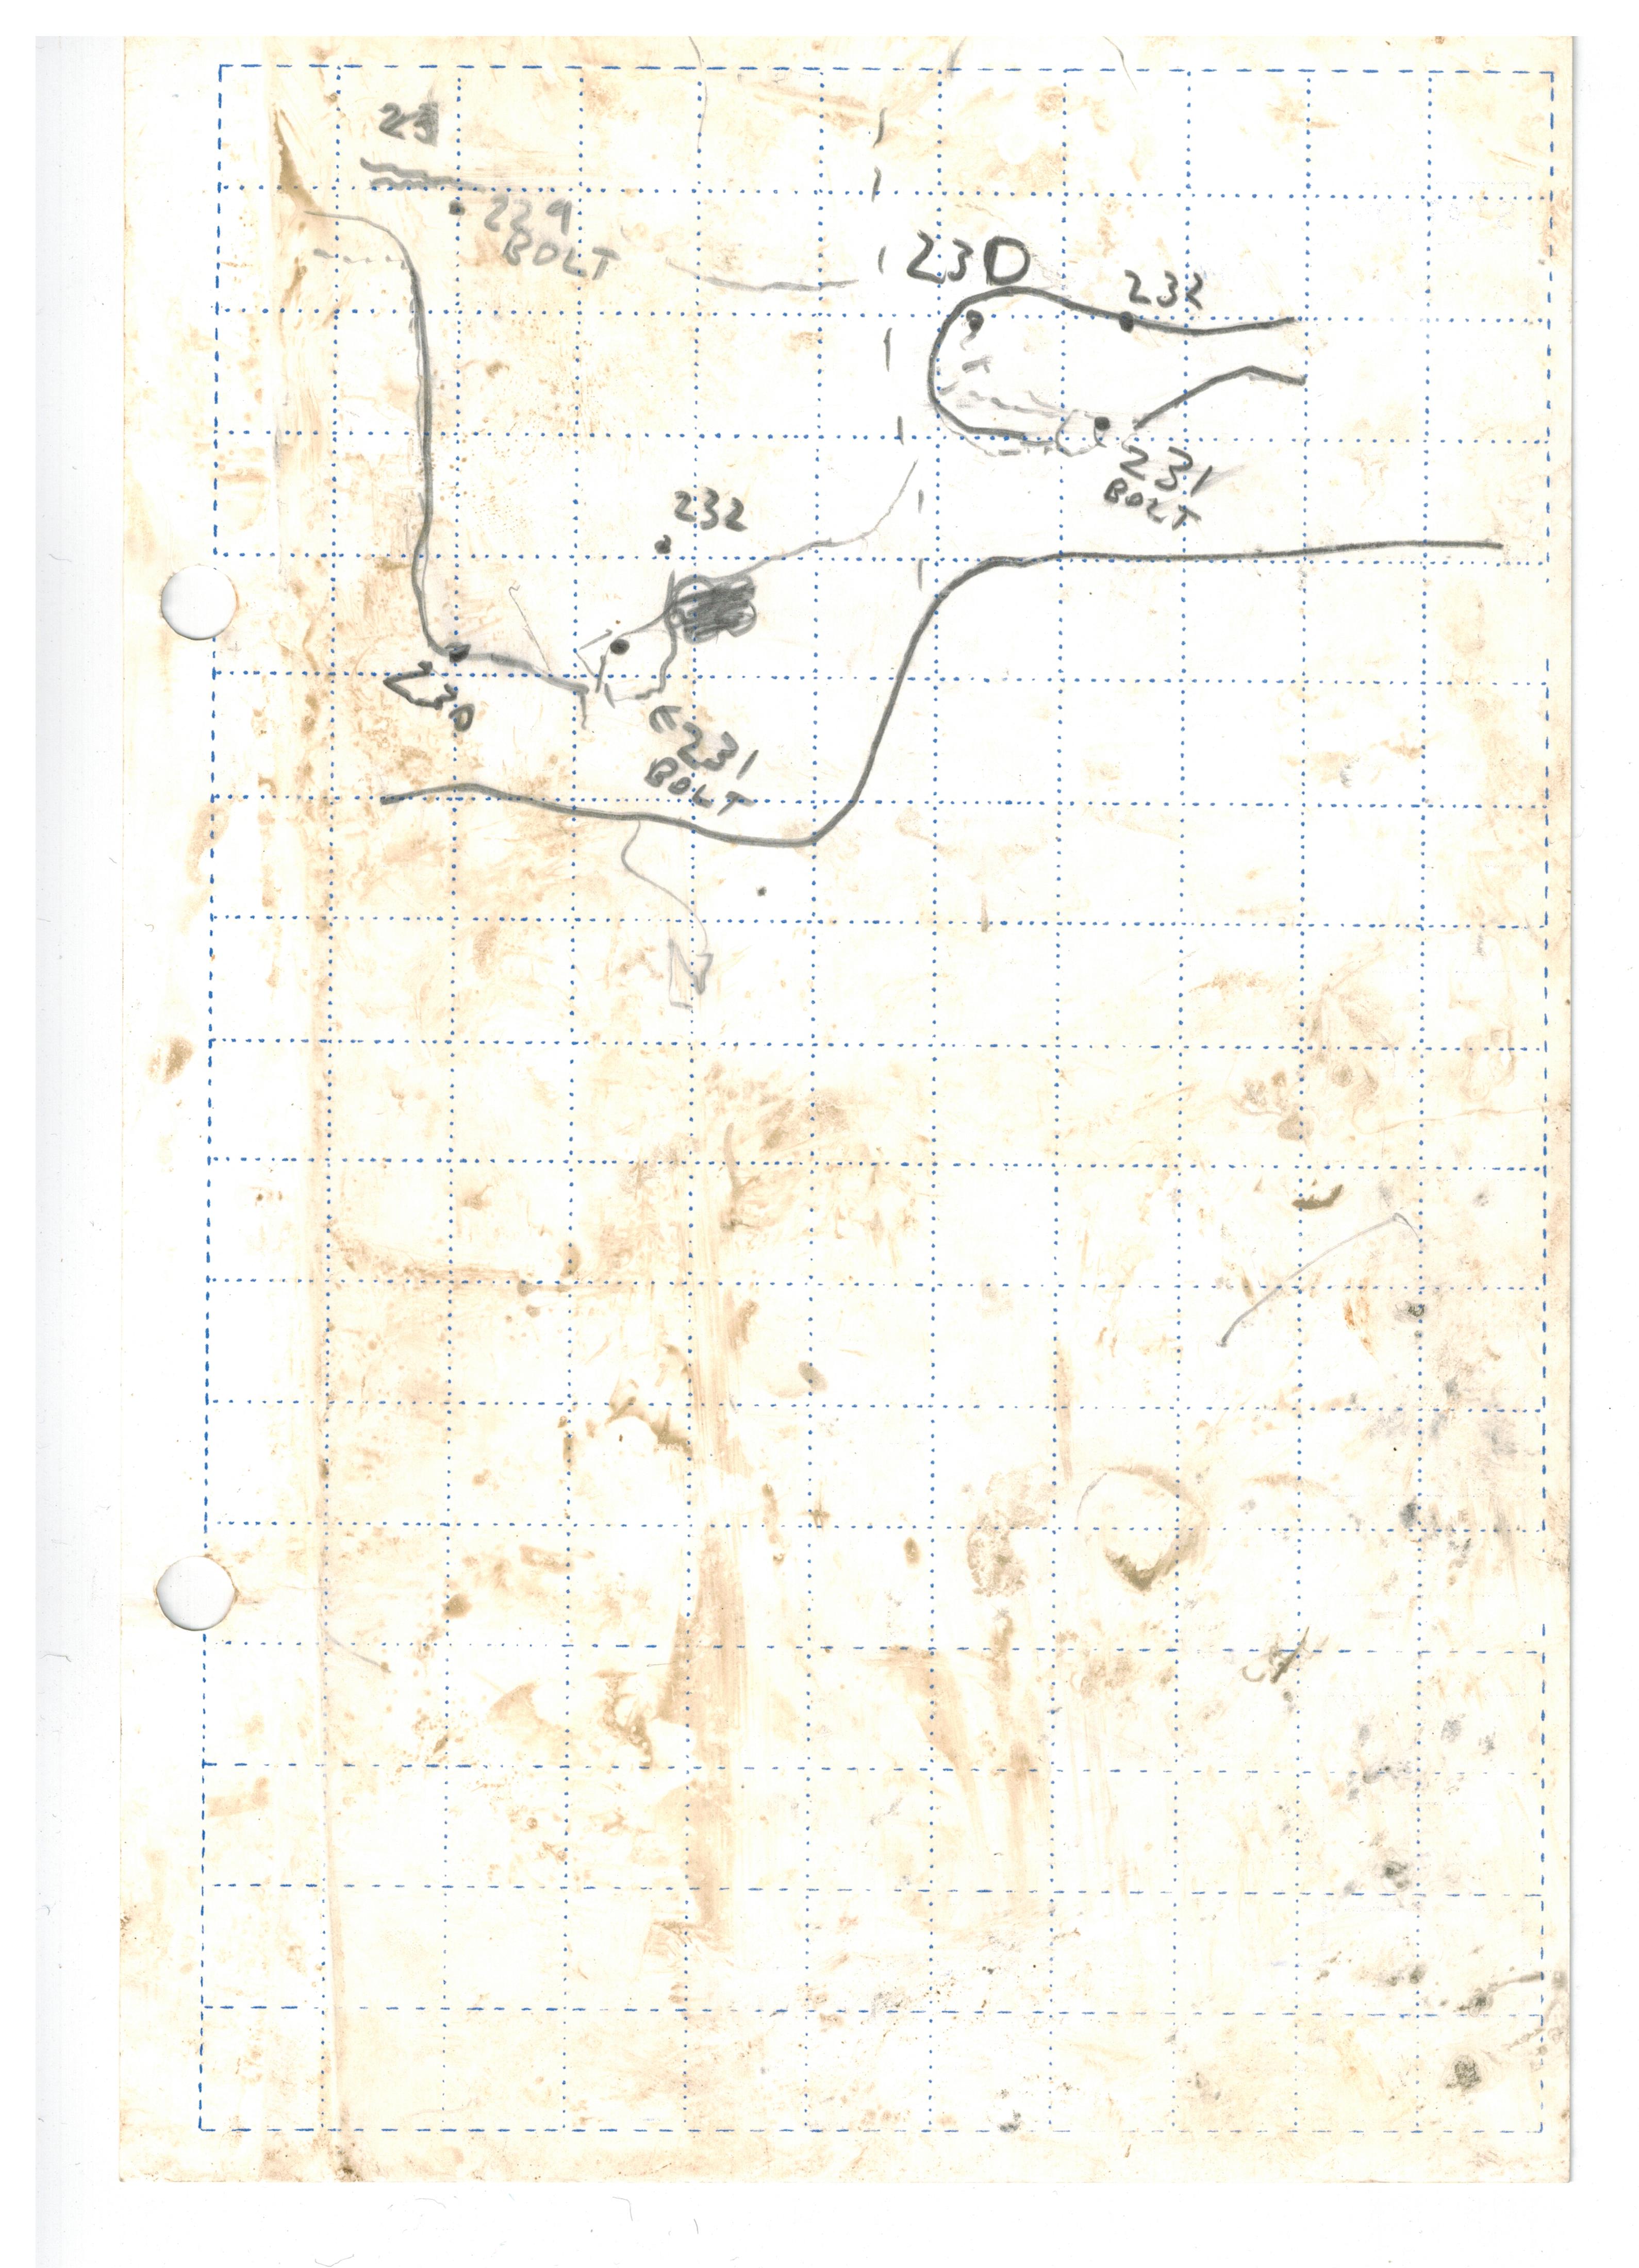 229
BOLT
23D
232
231
BOLT
232
230
231
BOLT